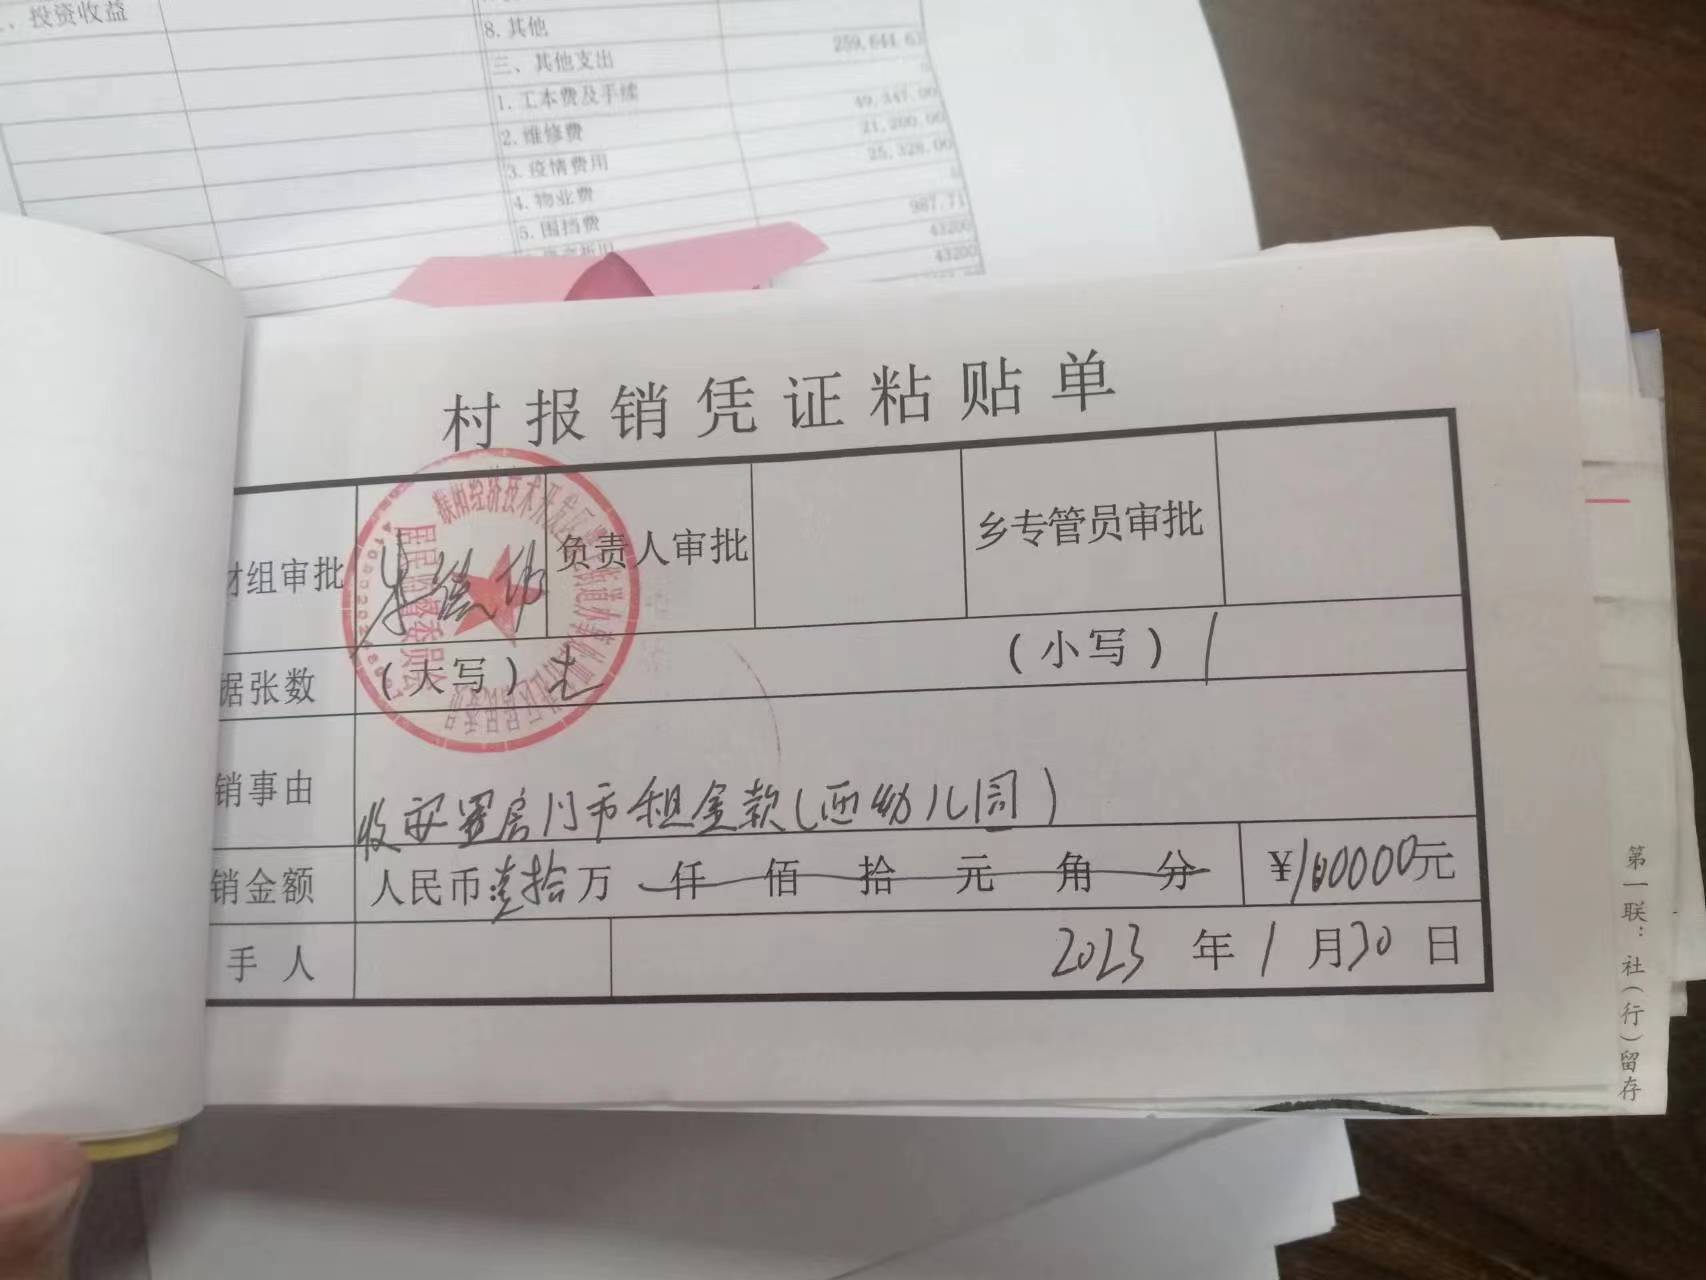 、投资收益
8. 其他
259,644.63
三、其他支出
1. 工本费及手续
49,347.00
2. 维修费
21,200.00
3. 疫情费用
25,328.00
4. 物业费
5. 围挡费
987.71
43200
43200
村报销凭证粘贴单
财组审批
负责人审批
乡专管员审批
居民监督委员会
据张数
(大写)
(小写) 1
销事由
收安置房门市租金款(西幼儿园)
销金额
人民币壹拾万仟佰拾元角分
¥100000元
手人
2023年1月30日
第一联:社(行)留存